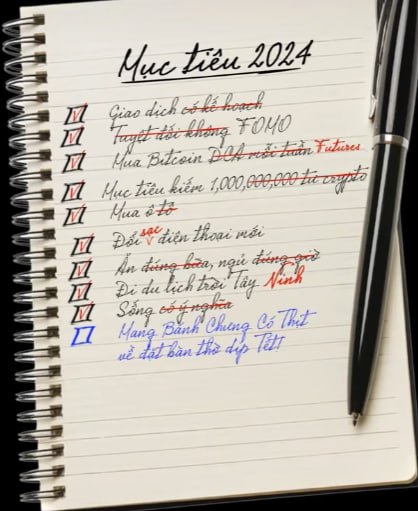 Mục tiêu 2024
Giao dịch có kế hoạch
Tuyệt đối không FOMO
Mua Bitcoin DCA mỗi tuần Futures
Mục tiêu kiếm 1,000,000,000 từ crypto
Mua ô tô
Đổi sạc điện thoại mới
Ăn đúng bữa, ngủ đúng giờ
Đi du lịch trời Tây Ninh
Sống có ý nghĩa
Mang Bánh Chưng Có Thịt
về đặt bàn thờ dịp Tết!